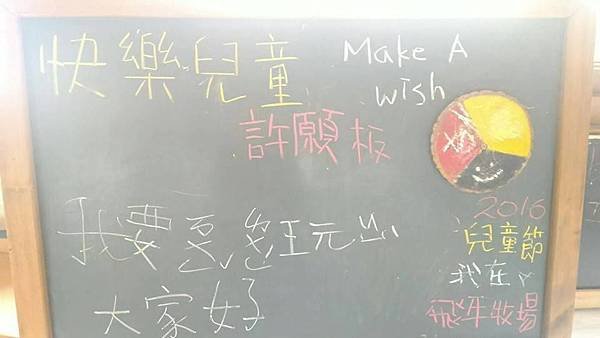 快樂兒童
Make A
wish
許願板
我要
大家好
2016
兒童節
我在
飛牛牧場